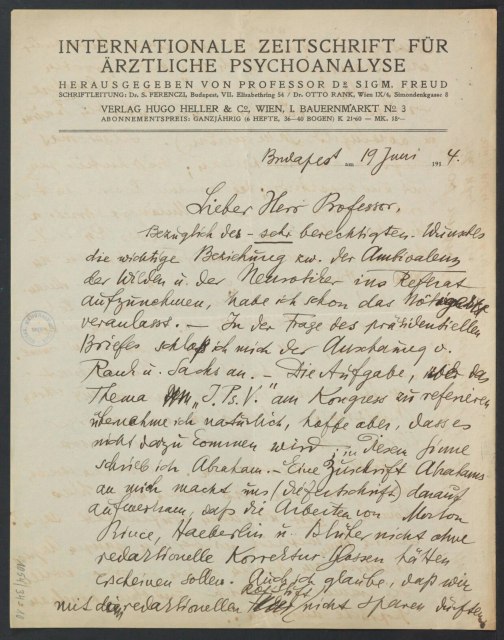 INTERNATIONALE ZEITSCHRIFT FÜR
ÄRZTLICHE PSYCHOANALYSE
HERAUSGEGEBEN VON PROFESSOR DR SIGM. FREUD
SCHRIFTLEITUNG: Dr. S. FERENCZI, Budapest, VII. Elisabethring 54 / Dr. OTTO RANK, Wien IX/4, Simondenkgasse 8
VERLAG HUGO HELLER & Co, WIEN, I. BAUERNMARKT No 3
ABONNEMENTSPREIS: GANZJÄHRIG (6 HEFTE, 36—40 BOGEN) K 21·60 — MK. 18·—
Budapest am 19 Juni 1914.
Lieber Herr Professor,
Bezüglich des – sehr berechtigten – Wunsches
die wichtige Beziehung zw. der Ambivalenz
der Wilden u. der Neurotiker ins Referat
aufzunehmen, habe ich schon das Nötige
veranlasst. – In der Frage des präsidentiellen
Briefes schloß ich mich der Anschauung v.
Rank u. Sachs an. – Die Aufgabe, das
Thema „I.Ps.V." am Kongress zu referieren
übernehme ich natürlich, hoffe aber, dass es
nicht dazu kommen wird; in diesem Sinne
schrieb ich Abraham. – Eine Zuschrift Abrahams
an mich macht uns darauf
aufmerksam, daß die Arbeiten von Morton
Prince, Haeberlin u. Blüher nicht ohne
redaktionelle Korrektur-Glossen hätten
erscheinen sollen. Auch ich glaube, daß wir
mit dem redaktionellen Rotstift nicht sparen dürften